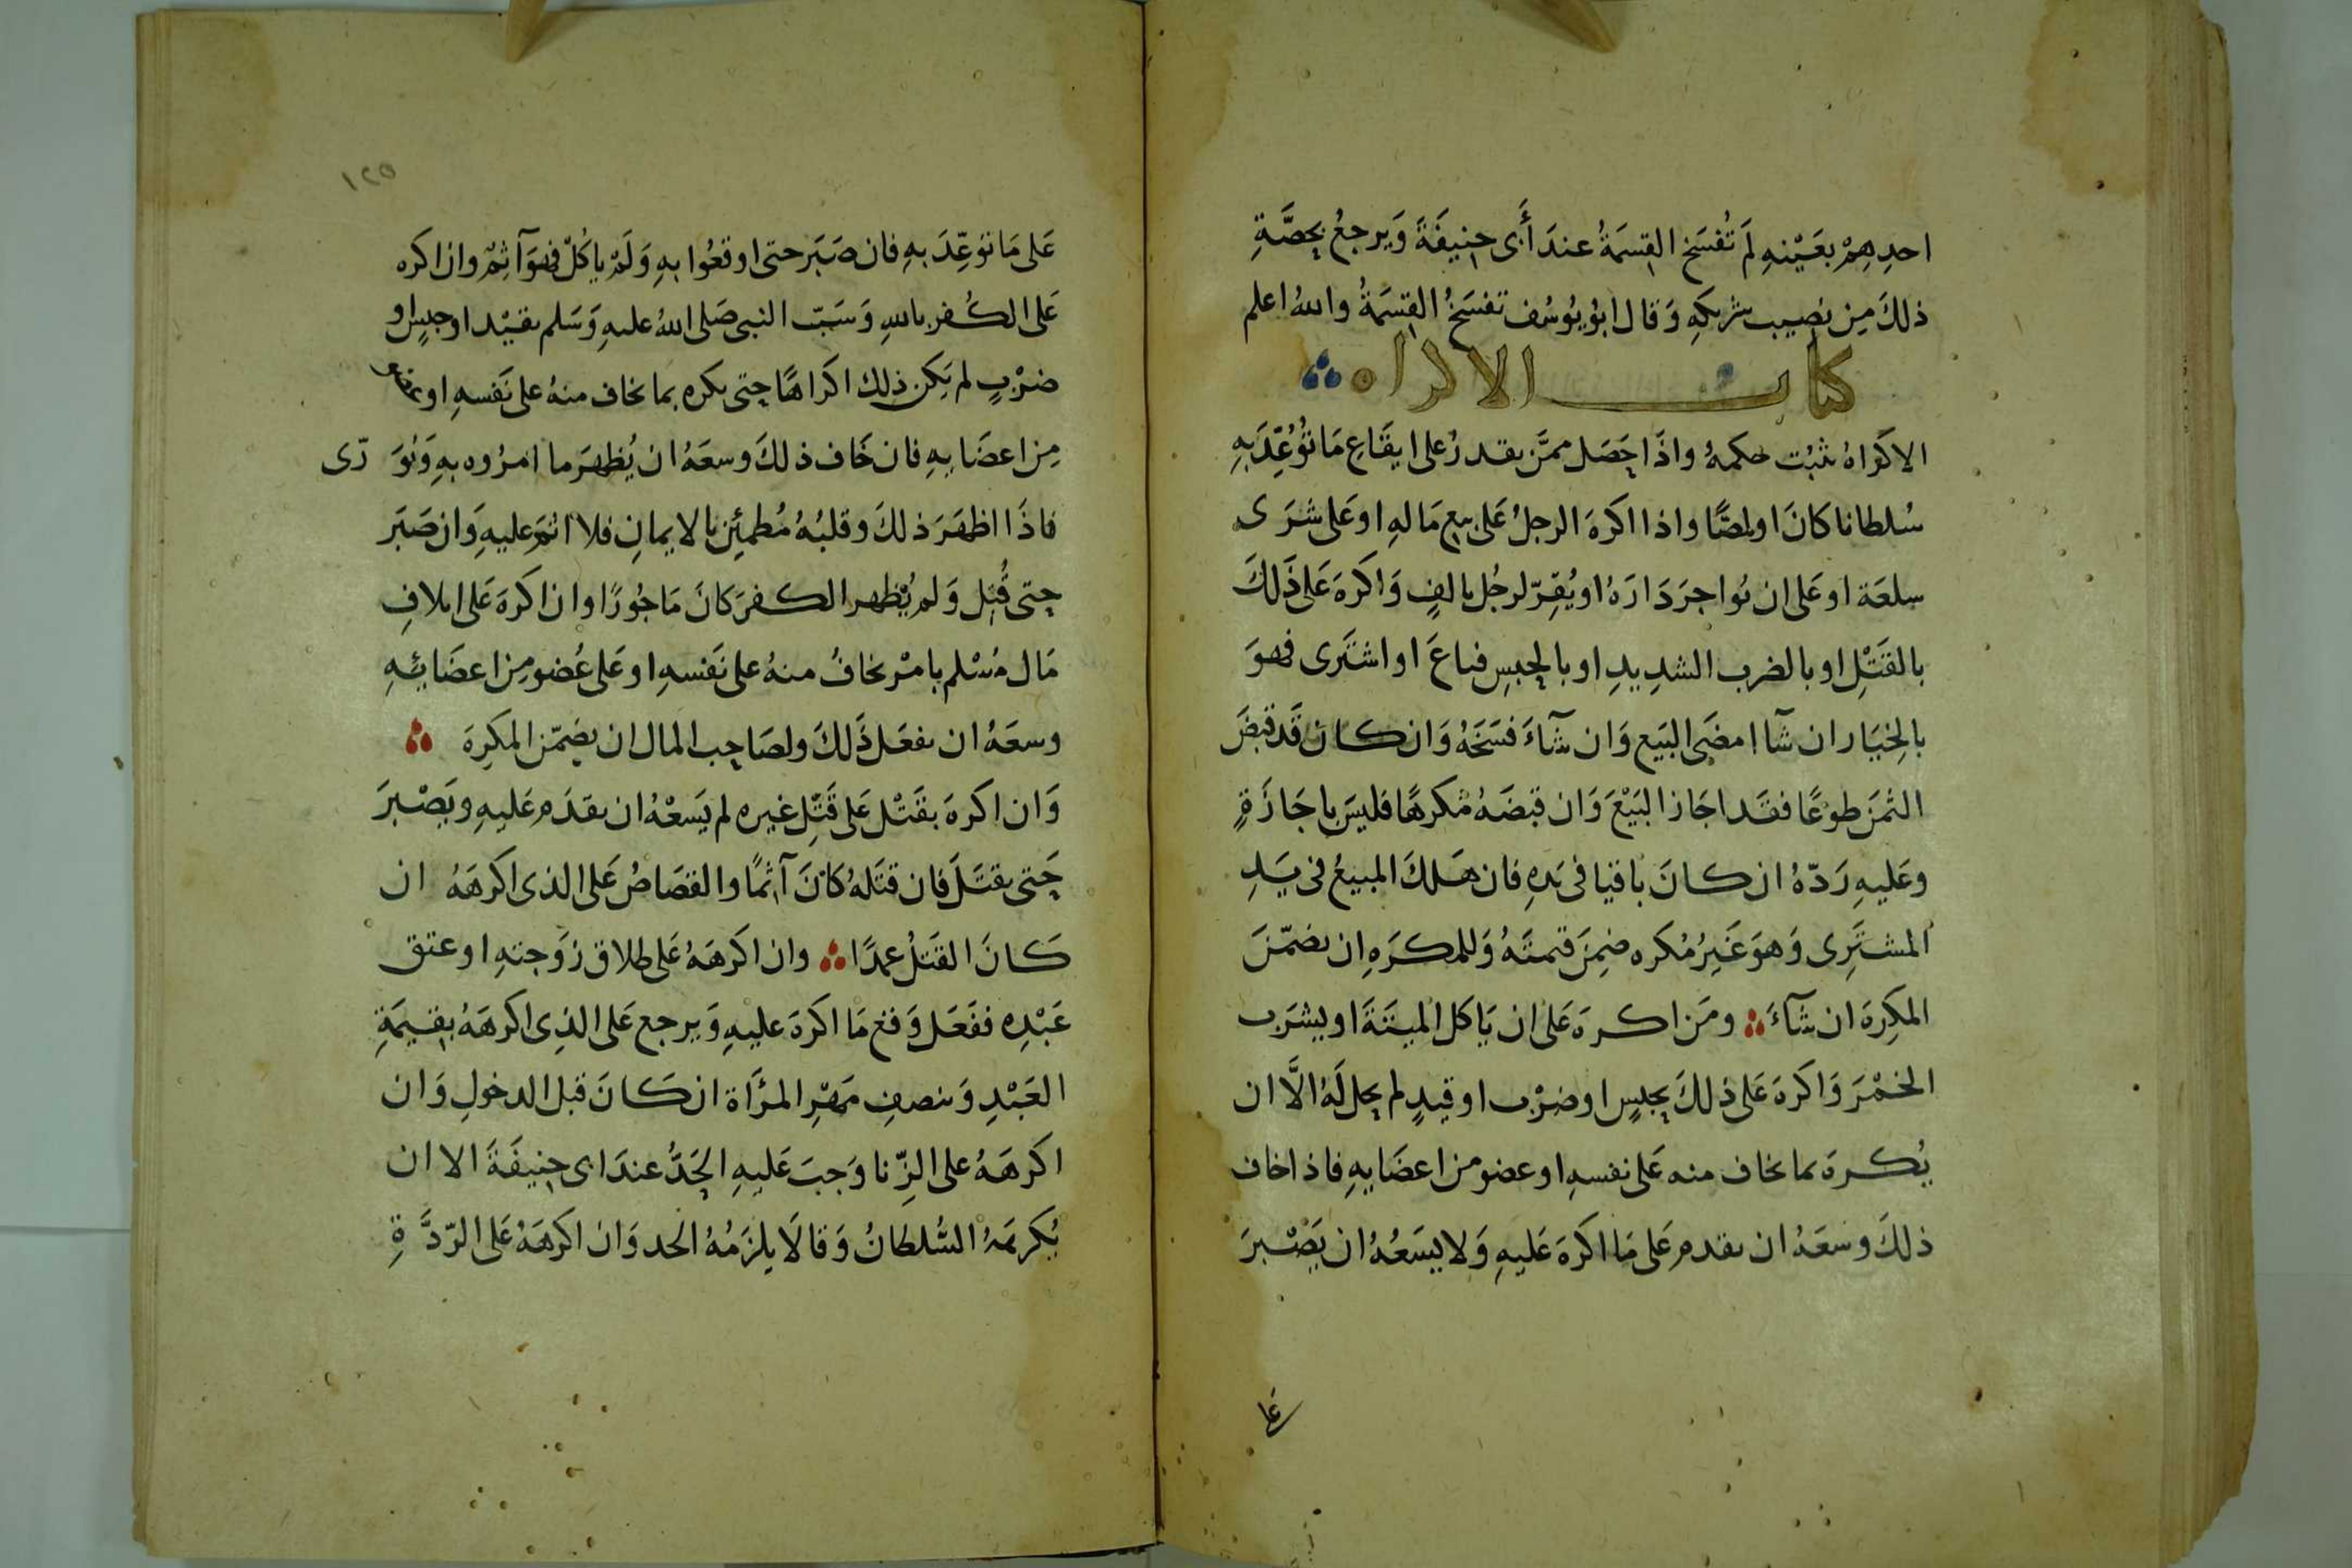 احدِهِمْ بعَيْنهِ لَم تُفسَخ القِسمَةُ عندَ أَبى حنيفَةَ وَيرجعُ بحصَّةِ
ذلكَ مِن نصِيبِ شريكهِ وَقال ابوُ يوُسُف تفسَخُ القِسمَةُ والله اعلم
كتاب الاكراه
الاكراهُ يثبُت حكمهُ واذَا حَصَل ممَّن يقدرُ على ايقَاعِ مَا تُوُعِّدَ بهِ
سُلطانا كانَ اولصًّا واذا اكرهَ الرجلُ عَلى بيع مَالهِ اوعَلى شرَى
سلعَة اوعَلى ان يُواجرَ دَارَهُ اويُقِرّ لرجُل بالفٍ وَاكرهَ عَلى ذَلكَ
بالقَتْلِ اوبالضرب الشدِيدِ اوبالحبسِ فباعَ اواشتَرى فهوَ
بالخيَار ان شآ امضَى البَيع وَان شآءَ فسَخَهُ وَان كان قَد قبَضَ
الثمَنَ طوْعًا فقَد اجَاز البَيْعَ وَان قبَضَهُ مُكرهًا فليسَ باجَازَةٍ
وعَليهِ رَدّهُ ان كانَ باقيا فى يَدهِ فان هَلكَ المبيعُ فى يَدِ
المشتَرِى وَهوَ غَيرُ مُكره ضمِنَ قيمتَهُ وَللمكرَهِ ان يضمّنَ
المكرِهَ ان شآءَ ومَن اكرهَ عَلى ان يَاكل الميتَةَ اويشرَب
الخمْرَ وَاكرهَ عَلى ذلكَ بحبسٍ اوضرْب اوقيدٍ لم يحل لَهُ الاَّ ان
يُكرهَ بما يخاف منه عَلى نفسهِ اوعضو من اعضَايهِ فاذا خاف
ذلكَ وسَعَهُ ان يقدم عَلى مَا اكرهَ عَليهِ وَلا يسَعُهُ ان يَصْبرَ
عَلى
١٢٥
عَلى مَا توعِّدَ بهِ فان صَبَر حتى اوقعُوا بهِ وَلَمْ ياكُلْ فهوَ آثمْ وان اكره
عَلى الكُفر باللهِ وَسَبّ النبى صَلى اللهُ عليهِ وَسَلم بقيْد اوحبسٍ او
ضرْبٍ لم يَكن ذلك اكرَاهًا حتى يكره بما يخاف منهُ على نَفسهِ او عضو
مِن اعضَايهِ فان خَاف ذلكَ وسعَهُ ان يُظهرَ ما امرُوه بهِ وَيُوَرّى
فاذَا اظهَرَ ذلكَ وقلبُهُ مُطمئِن بالايمانِ فلا اثمَ عليهِ وَان صَبَر
حتى قُتل وَلم يُظهر الكفرَ كانَ مَاجُورًا وان اكرهَ عَلى اتلافِ
مَال مُسْلم بامْر يخافُ منهُ على نَفسهِ اوعَلى عُضو مِن اعضَائِهِ
وسعَهُ ان يفعَل ذَلكَ ولصَاحِب المال ان يضمّن المكرِهَ
وَان اكرهَ بقَتْل عَلى قَتْل غيره لم يَسَعْهُ ان يقدَم عَليهِ ويَصْبرَ
حَتى يقتَلَ فان قتَلهُ كانَ آثمًا والقصَاصُ عَلى الذى اكرهَهُ ان
كانَ القَتلُ عمدًا وان اكرَههُ عَلى طلاق زوَجتهِ اوعتق
عَبْدِه ففعَل وَقع مَا اكرهَ عليهِ وَيرجع عَلى الذِى اكرهَهُ بقيمَةِ
العَبْدِ وَبنصفِ مَهْرِ المرْأَة ان كانَ قبل الدخولِ وَان
اكرهَهُ على الزِّنا وَجبَ عَليهِ الحَدُّ عندَ ابى حنيفَةَ الا ان
يُكرهَهُ السُّلطانُ وَقالاَ يلزَمُهُ الحد وَان اكرهَهُ عَلى الرّدَّةِ